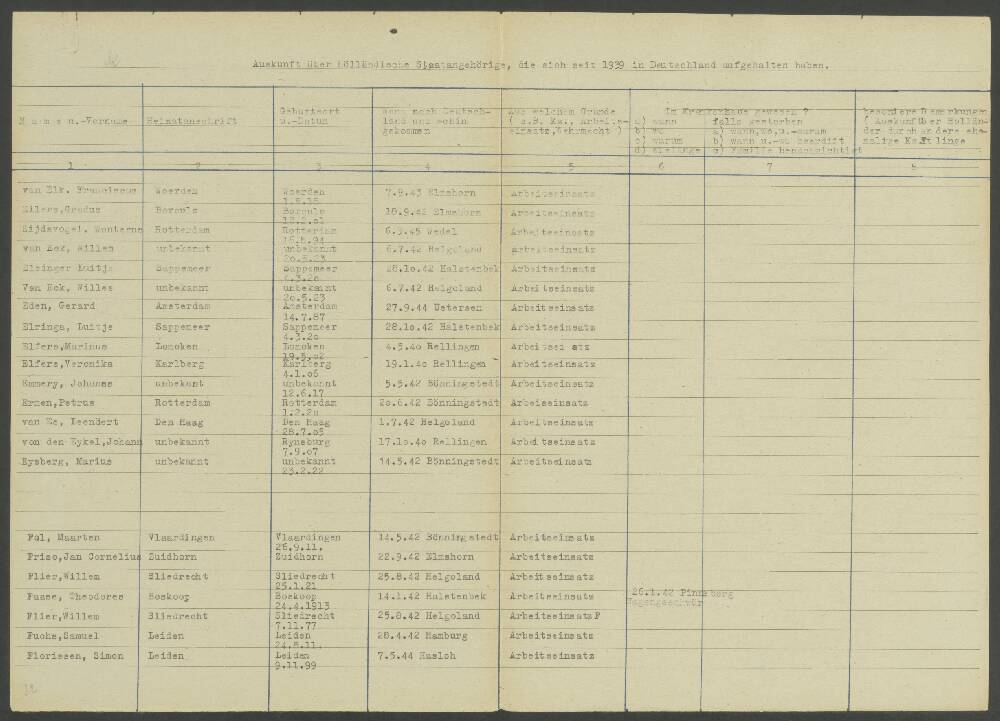 Auskunft über Holländische Staatangehörige, die sich seit 1939 in Deutschland aufgehalten haben.
N a m e n.-Vorname Heimatanschrift Geburtsort u.-Datum wann nach Deutsch-land und wohin gekommen Aus welchem Grunde ( z.B. Kz., Arbeits-einsatz,Wehrmacht ) Im Krankenhaus gewesen ? a) wann b) wo c) warum d) wielange falls gestorben a) wann,wo,u.-warum b) wann u.-wo beerdigt c) Familie benachrichtigt besondere Bemerkungen ( Auskunft über Hollän-der durch andere ehe-malige Häftlinge
1 2 3 4 5 6 7 8
van Elk. Franciscus Woerden Woerden 7.9.43 Elmshorn Arbeitseinsatz
1.5.15
Eilers,Gradus Borculo Borculo 18.9.42 Elmshorn Arbeitseinsatz
Eijdsvogel. Rotterdam Rotterdam 6.3.45 Wedel Arbeitseinsatz
16.5.94
van Eck, Willem unbekannt unbekannt 6.7.42 Helgoland Arbeitseinsatz
20.5.23
Luitje Sappemeer Sappemeer 28.10.42 Halstenbek Arbeitseinsatz
4.3.20
Van Eck, Willes unbekannt unbekannt 6.7.42 Helgoland Arbeitseinsatz
20.5.23
Eden, Gerard Amsterdam Amsterdam 27.9.44 Uetersen Arbeitseinsatz
14.7.87
Elringa, Luitje Sappemeer Sappemeer 28.10.42 Halstenbek Arbeitseinsatz
4.3.20
Elfers,Marinus Lomoken Lomoken 4.5.40 Rellingen Arbeitsei atz
19.5.02
Elfers,Veronika Karlberg Karlberg 19.1.40 Rellingen Arbeitseinsatz
4.1.06
Emmery, Johanes unbekant unbekannt 5.5.42 Bönningstedt Arbeitseinsatz
12.6.17
Ermen,Petrus Rotterdam Rotterdam 20.6.42 Bönningstedt Arbeiseinsatz
1.2.20
van Es, Leendert Den Haag Den Haag 1.7.42 Helgoland Arbeitseinsatz
28.7.05
von den Eykel,Johann unbekannt Rynsburg 17.10.40 Rellingen Arbeitseinsatz
7.9.07
Eysberg, Marius unbekannt unbekannt 14.5.42 Bönningstedt Arbeitseinsatz
23.2.22
Fol, Maarten Vlaardingen Vlaardingen 14.5.42 Bönningstedt Arbeitseinsatz
26.9.11.
Friso,Jan Cornelius Zuidhorn Zuidhorn 22.9.42 Elmshorn Arbeitseinsatz
Flier,Willem Sliedrecht Sliedrecht 25.8.42 Helgoland Arbeitseinsatz
25.1.21
Faase, Theodores Boskoop Boskoop 14.1.42 Halstenbek Arbeitseinsatz 26.1.42 Pinneberg
24.4.1913 Magengeschwür
Flier,Willem Sliedrecht Sliedrecht 25.8.42 Helgoland ArbeitseinsatzF
7.11.77
Fuchs,Samuel Leiden Leiden 28.4.42 Hamburg Arbeitseinsatz
24.8.11.
Florissen, Simon Leiden Leiden 7.5.44 Hasloh Arbeitseinsatz
9.11.99